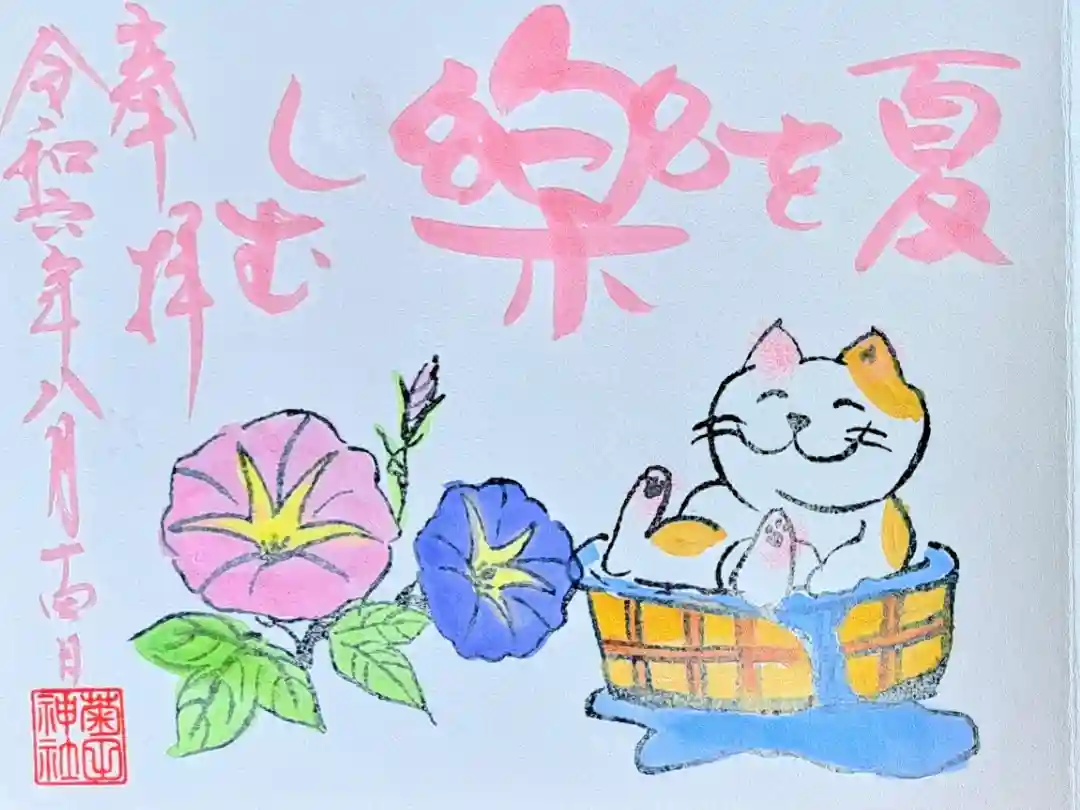 夏を
楽
しむ
奉拝
令和六年八月十四日
菊田
神社